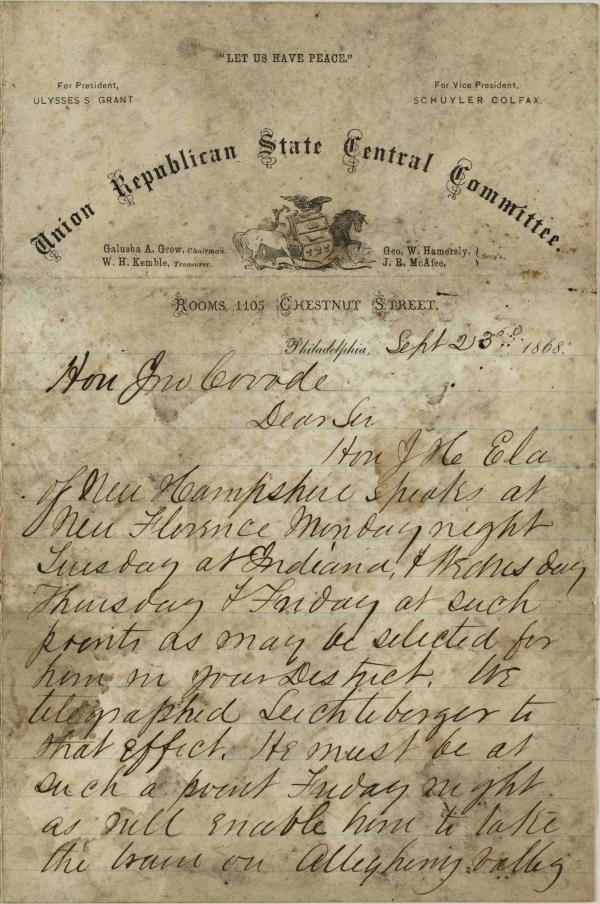 "LET US HAVE PEACE."
For President,
ULYSSES S GRANT
For Vice President,
SCHUYLER COLFAX.
Union Republican State Central Committee.
Galusha A. Grow, Chairman.
W. H. Kemble, Treasurer.
Geo. W. Hamersly,
J. R. McAfee,
Secy's.
ROOMS, 1105 CHESTNUT STREET.
Philadelphia, Sept 23rd 1868.
Hon Jno Covode
Dear Sir
Hon J H Ela
of New Hampshire speaks at
New Florence Monday night
Tuesday at Indiana, & Wednesday
Thursday & Friday at such
points as may be selected for
him in your District. We
telegraphed Leichteberger to
that effect. He must be at
such a point Friday night
as will enable him to take
the train on Allegheny Valley